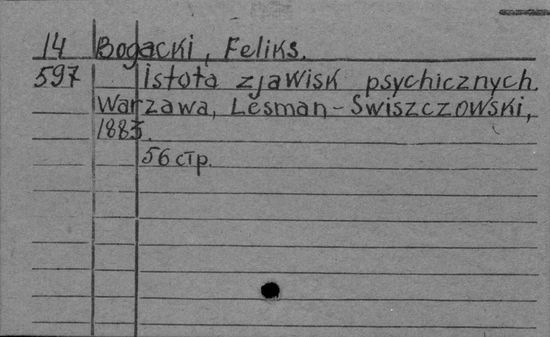 14 Bogacki, Feliks.
597 Istota zjawisk psychicznych.
Warzawa, Lesman-Swiszczowski,
1883.
56 стр.